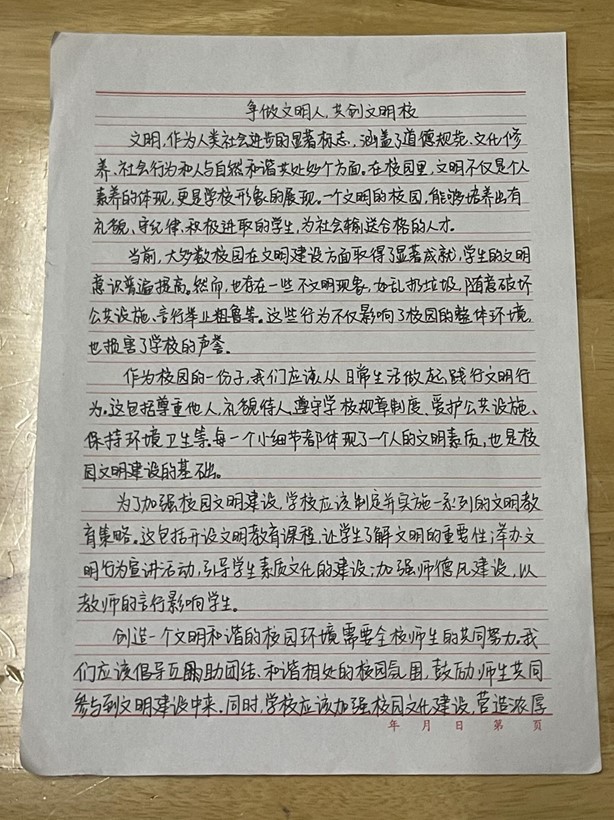 争做文明人,共创文明校
文明,作为人类社会进步的显著标志,涵盖了道德规范、文化修
养、社会行为和人与自然和谐共处等多个方面。在校园里,文明不仅是个人
素养的体现,更是学校形象的展现。一个文明的校园,能够培养出有
礼貌、守纪律、积极进取的学生,为社会输送合格的人才。
当前,大多数校园在文明建设方面取得了显著成就,学生的文明
意识普遍提高。然而,也存在一些不文明现象,如乱扔垃圾,随意破坏
公共设施、言行举止粗鲁等。这些行为不仅影响了校园的整体环境,
也损害了学校的声誉。
作为校园的一份子,我们应该从日常生活做起,践行文明行
为。这包括尊重他人,礼貌待人,遵守学校规章制度、爱护公共设施、
保持环境卫生等。每一个小细节都体现了一个人的文明素质,也是校
园文明建设的基础。
为了加强校园文明建设,学校应该制定并实施一系列的文明教
育策略。这包括开设文明教育课程,让学生了解文明的重要性;举办文
明行为宣讲活动,引导学生素质文化的建设;加强师德师风建设,以
教师的言行影响学生。
创造一个文明和谐的校园环境需要全校师生的共同努力。我
们应该倡导互助团结、和谐相处的校园氛围,鼓励师生共同
参与到文明建设中来。同时,学校应该加强校园文化建设,营造浓厚
年 月 日 第 页